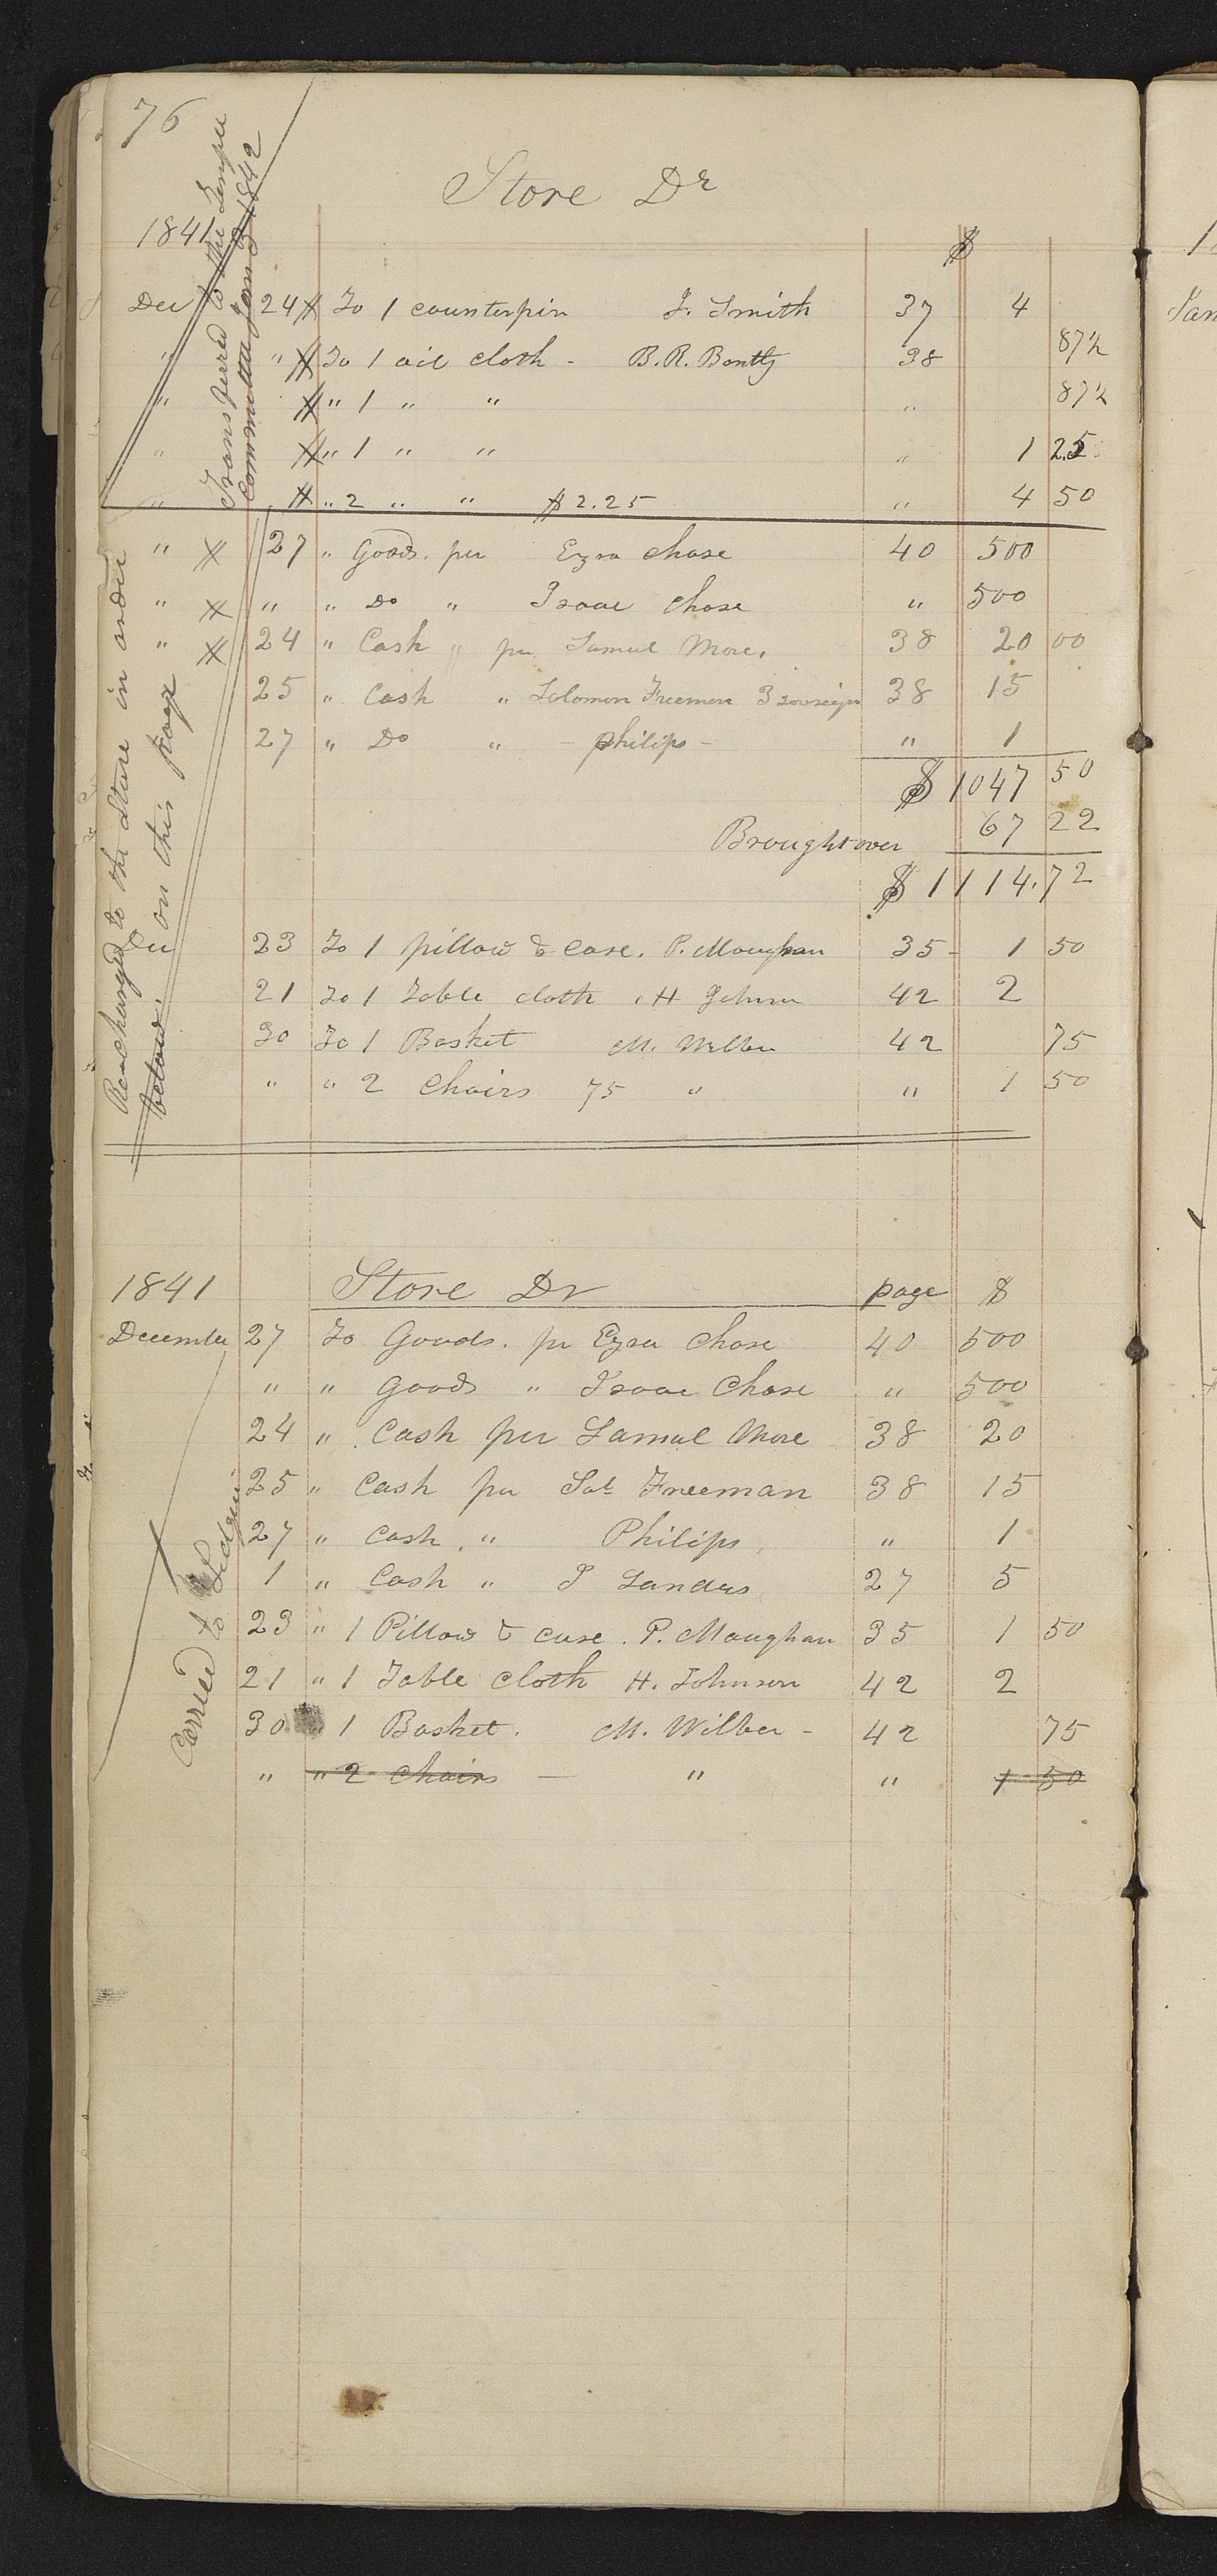 76
Store Dr
1841
Transferred to the Temple
Committee Jany 3 1842
$
Dec 24 To 1 counterpin J. Smith 37 4
" " To 1 oil cloth - B. R. Bently 38 87½
" " 1 " " " 87½
" " 1 " " " 1 25
" " 2 " " $2.25 " 4 50
" 27 " Goods. per Ezra Chase 40 500
" " " Do " Isaac Chase " 500
" 24 " Cash " per Samuel More. 38 20 00
25 " Cash " Solomon Freeman 3 sovreign 38 15
27 " Do " - Philips - " 1
$ 1047 50
Brought over 67 22
$ 1114.72
Re-charged to the Store in order
on this page
below.
Dec 23 To 1 pillow & case. P. Maughan 35 - 1 50
21 To 1 Table cloth, H Johnson 42 2
30 To 1 Basket M. Wilber 42 75
" " 2 Chairs 75 " " 1 50
1841 Store Dr page $
December 27 To Goods. pr Ezra Chase 40 500
" " Goods " Isaac Chase " 500
24 " Cash per Samuel More 38 20
25 " Cash per Sol Freeman 38 15
27 " Cash. " Philips. " 1
1 " Cash " J Sanders 27 5
23 " 1 Pillow & case. P. Maughan 35 1 50
21 " 1 Table cloth H. Johnson 42 2
30 " 1 Basket. M. Wilber - 42 75
" " 2 Chairs — " " 1 50
Carried to Ledger